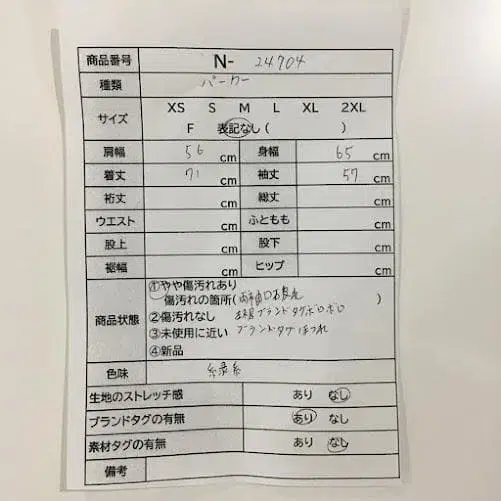 商品番号 N- 24704
種類 パーカー
サイズ XS S M L XL 2XL
F 表記なし( )
肩幅 56 cm 身幅 65 cm
着丈 71 cm 袖丈 57 cm
裄丈 cm 総丈 cm
ウエスト cm ふともも cm
股上 cm 股下 cm
裾幅 cm ヒップ cm
商品状態 ①やや傷汚れあり
傷汚れの箇所( )
②傷汚れなし ブランドタグボロボロ
③未使用に近い ブランドタグほつれ
④新品
色味 緑系
生地のストレッチ感 あり なし
ブランドタグの有無 あり なし
素材タグの有無 あり なし
備考